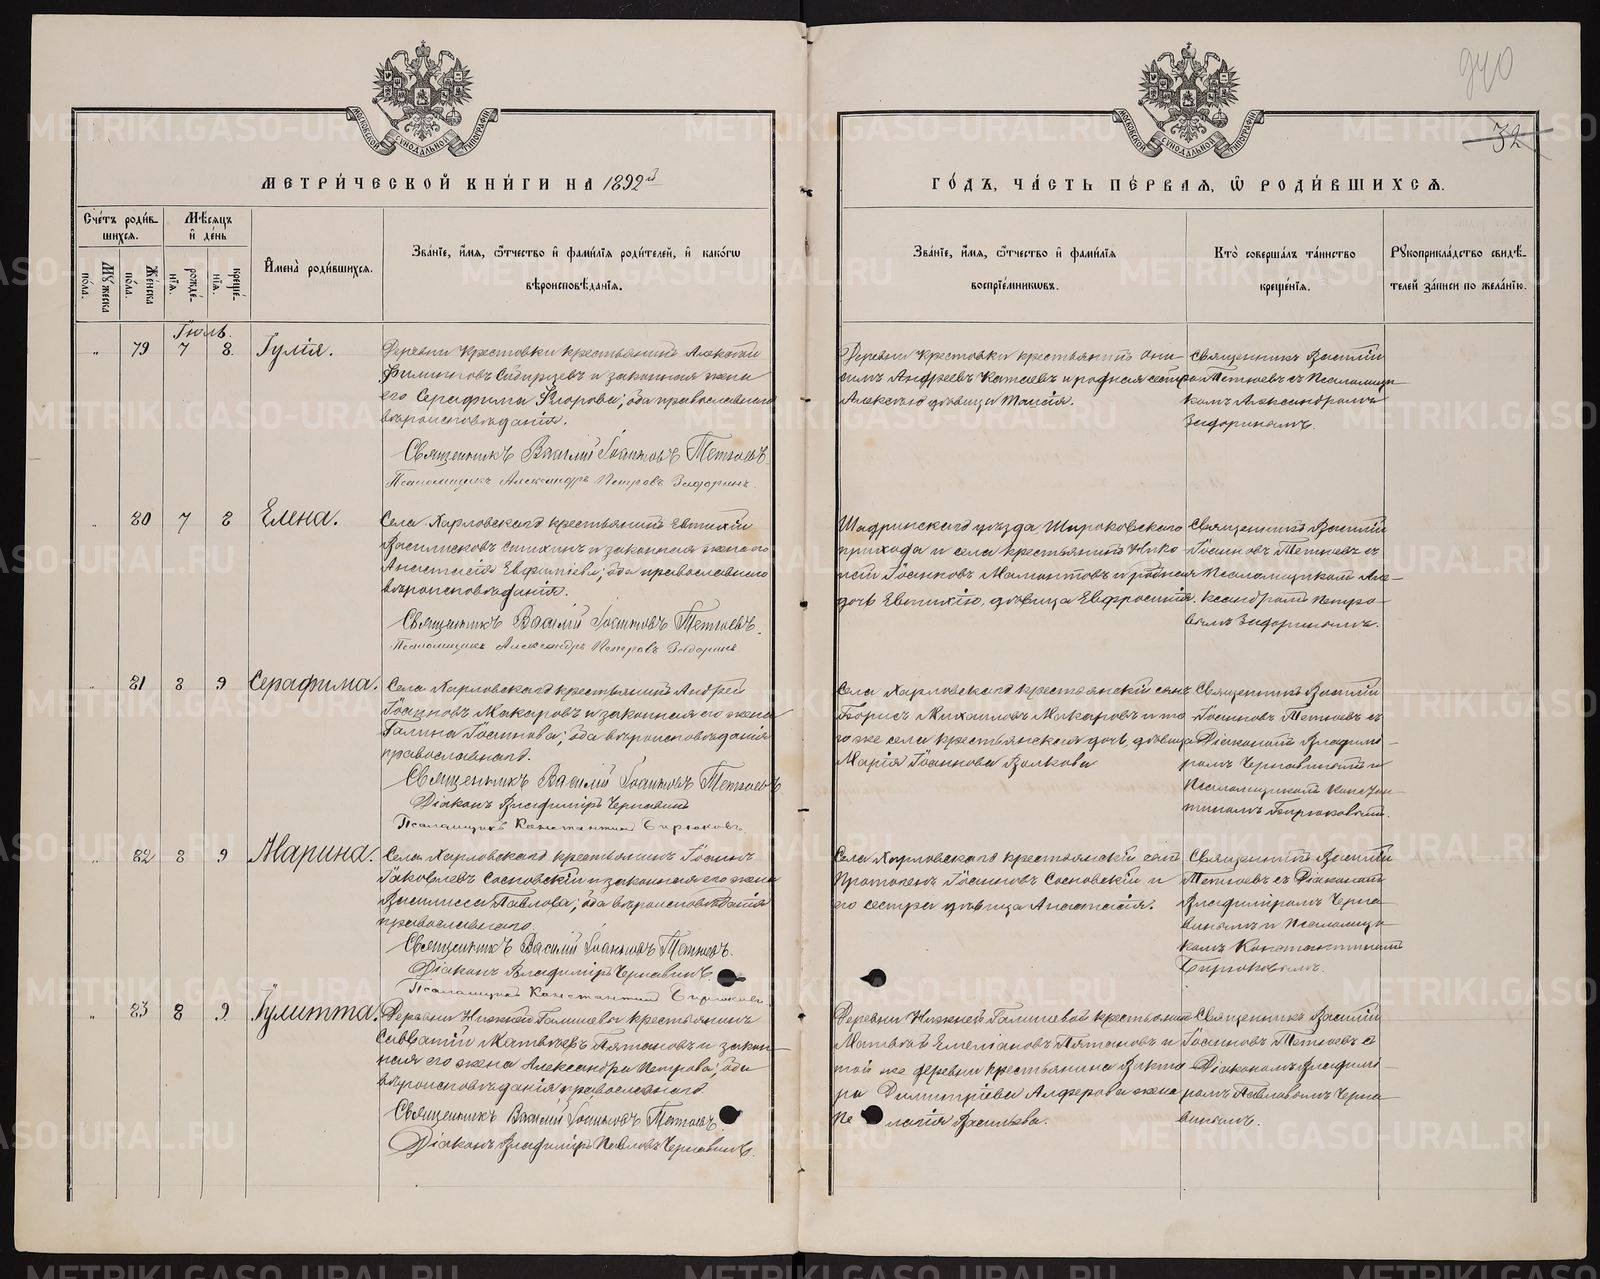 940
32
МОСКОВСКОЙ СѴНОДАЛЬНОЙ ТИПОГРАФІИ
МОСКОВСКОЙ СѴНОДАЛЬНОЙ ТИПОГРАФІИ
МЕТРИ́ЧЕСКОЙ КНИ́ГИ НА 1892й
ГО́ДЪ, ЧА́СТЬ ПЕ́РВАЯ, Ѿ РОДИ́ВШИХСЯ.
Сче́тъ роди́в-
шихся.
Мѣ́сяцъ
и҆ де́нь
Му́жеска по́ла.
Же́нска по́ла.
рожде́-нїя.
креще́-нїя.
И҆мена̀ роди́вшихся.
Зва́нїе, и҆́мя, ѻ҆́тчество и҆ фами́лїя роди́телей, и҆ како́гѡ
вѣроисповѣ́данїя.
Зва́нїе, и҆́мя, ѻ҆́тчество и҆ фами́лїя
воспрїе́мниковъ.
Кто̀ соверша́лъ та́инство
креще́нїя.
Рꙋкоприкла́дство свидѣ́-
телей за́писи по жела́нїю.
Іюль.
" 79 7 8. Іулія.
Деревни Крестовки крестьянинъ Алексѣй
Филиповъ Сибирцевъ и законная жена
его Серафима Егорова; оба православнаго
вѣроисповѣданія.
Священникъ Василій Іоанновъ Тетюевъ
Псаломщикъ Александръ Петровъ Зидоринъ.
Деревни Крестовки крестьянинъ Они-
симъ Андреевъ Катаевъ и родная сестра
Алексѣю дѣвица Таисія.
Священникъ Василій
Тетюевъ съ Псаломщи-
комъ Александромъ
Зидоринымъ.
" 80 7 8 Елена.
Села Харловскаго крестьянинъ Евтихій
Василисковъ Стихинъ и законная жена его
Анастасія Евфиміева; оба православнаго
вѣроисповѣданія.
Священникъ Василій Іоанновъ Тетюевъ.
Псаломщикъ Александръ Петровъ Зидоринъ
Шадринскаго уѣзда, Широковскаго
прихода и села крестьянинъ Нико-
лай Іоанновъ Мамонтовъ и родная
дочь Евтихію, дѣвица Евфросинія.
Священникъ Василій
Іоанновъ Тетюевъ съ
Псаломщикомъ Але-
ксандромъ Петро-
вымъ Зидоринымъ.
" 81 8 9 Серафима.
Села Харловскаго крестьянинъ Андрей
Іоанновъ Макаровъ и законная его жена
Галина Іоаннова; оба вѣроисповѣданія
православнаго.
Священникъ Василій Іоанновъ Тетюевъ
Діаконъ Владиміръ Чернавинъ
Псаломщикъ Константинъ Бирюковъ
Села Харловскаго крестьянскій сынъ
Борисъ Михаиловъ Макаровъ и то-
го же села крестьянская дочь, дѣвица
Марія Іоаннова Волкова
Священникъ Василій
Іоанновъ Тетюевъ съ
Діакономъ Владими-
ромъ Чернавинымъ и
Псаломщикомъ Констан-
тиномъ Бирюковымъ.
" 82 8 9 Марина.
Села Харловскаго крестьянинъ Іоаннъ
Іаковлевъ Сосновскій и законная его жена
Василисса Павлова; оба вѣроисповѣданія
православнаго.
Священникъ Василій Іоанновъ Тетюевъ.
Діаконъ Владиміръ Чернавинъ.
Псаломщикъ Константинъ Бирюковъ.
Села Харловскаго крестьянскій сынъ
Протогенъ Іоанновъ Сосновскій и
его сестра дѣвица Анастасія.
Священникъ Василій
Тетюевъ съ Діакономъ
Владиміромъ Черна-
винымъ и Псаломщи-
комъ Константиномъ
Бирюковымъ.
" 83 8 9 Іулитта.
Деревни Нижней Галишевы крестьянинъ
Савватій Матвѣевъ Пятановъ и закон-
ная его жена Александра Петрова; оба
вѣроисповѣданія православнаго.
Священникъ Василій Іоанновъ Тетюевъ
Діаконъ Владиміръ Павловъ Чернавинъ.
Деревни Нижней Галишевой крестьянинъ
Матвѣй Емеліановъ Пятановъ и
той же деревни крестьянина Викто-
ра Димитріева Алферова жена
Пелагія Васильева.
Священникъ Василій
Іоанновъ Тетюевъ съ
Діакономъ Владими-
ромъ Павловымъ Черна-
винымъ.
METRIKI.GASO-URAL.RU